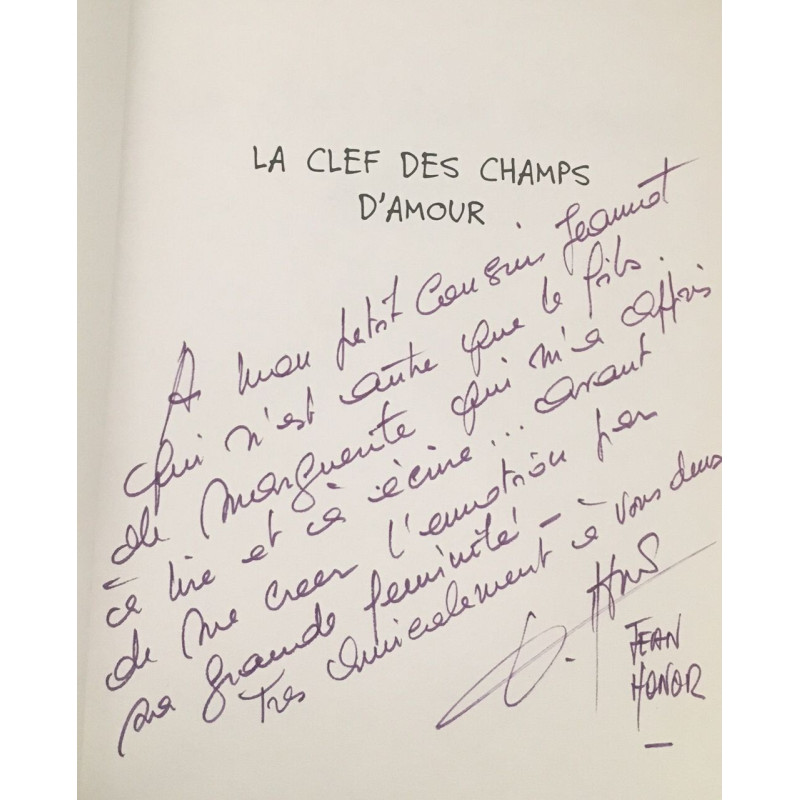 LA CLEF DES CHAMPS
D'AMOUR
A mon petit Cousin Jeannot
qui n'est autre que le fils
de Marguerite qui m'a appris
à lire et à écrire... avant
de me créer l'émotion par
sa grande féminité - à vous deux
Très amicalement
JEAN
HONOR